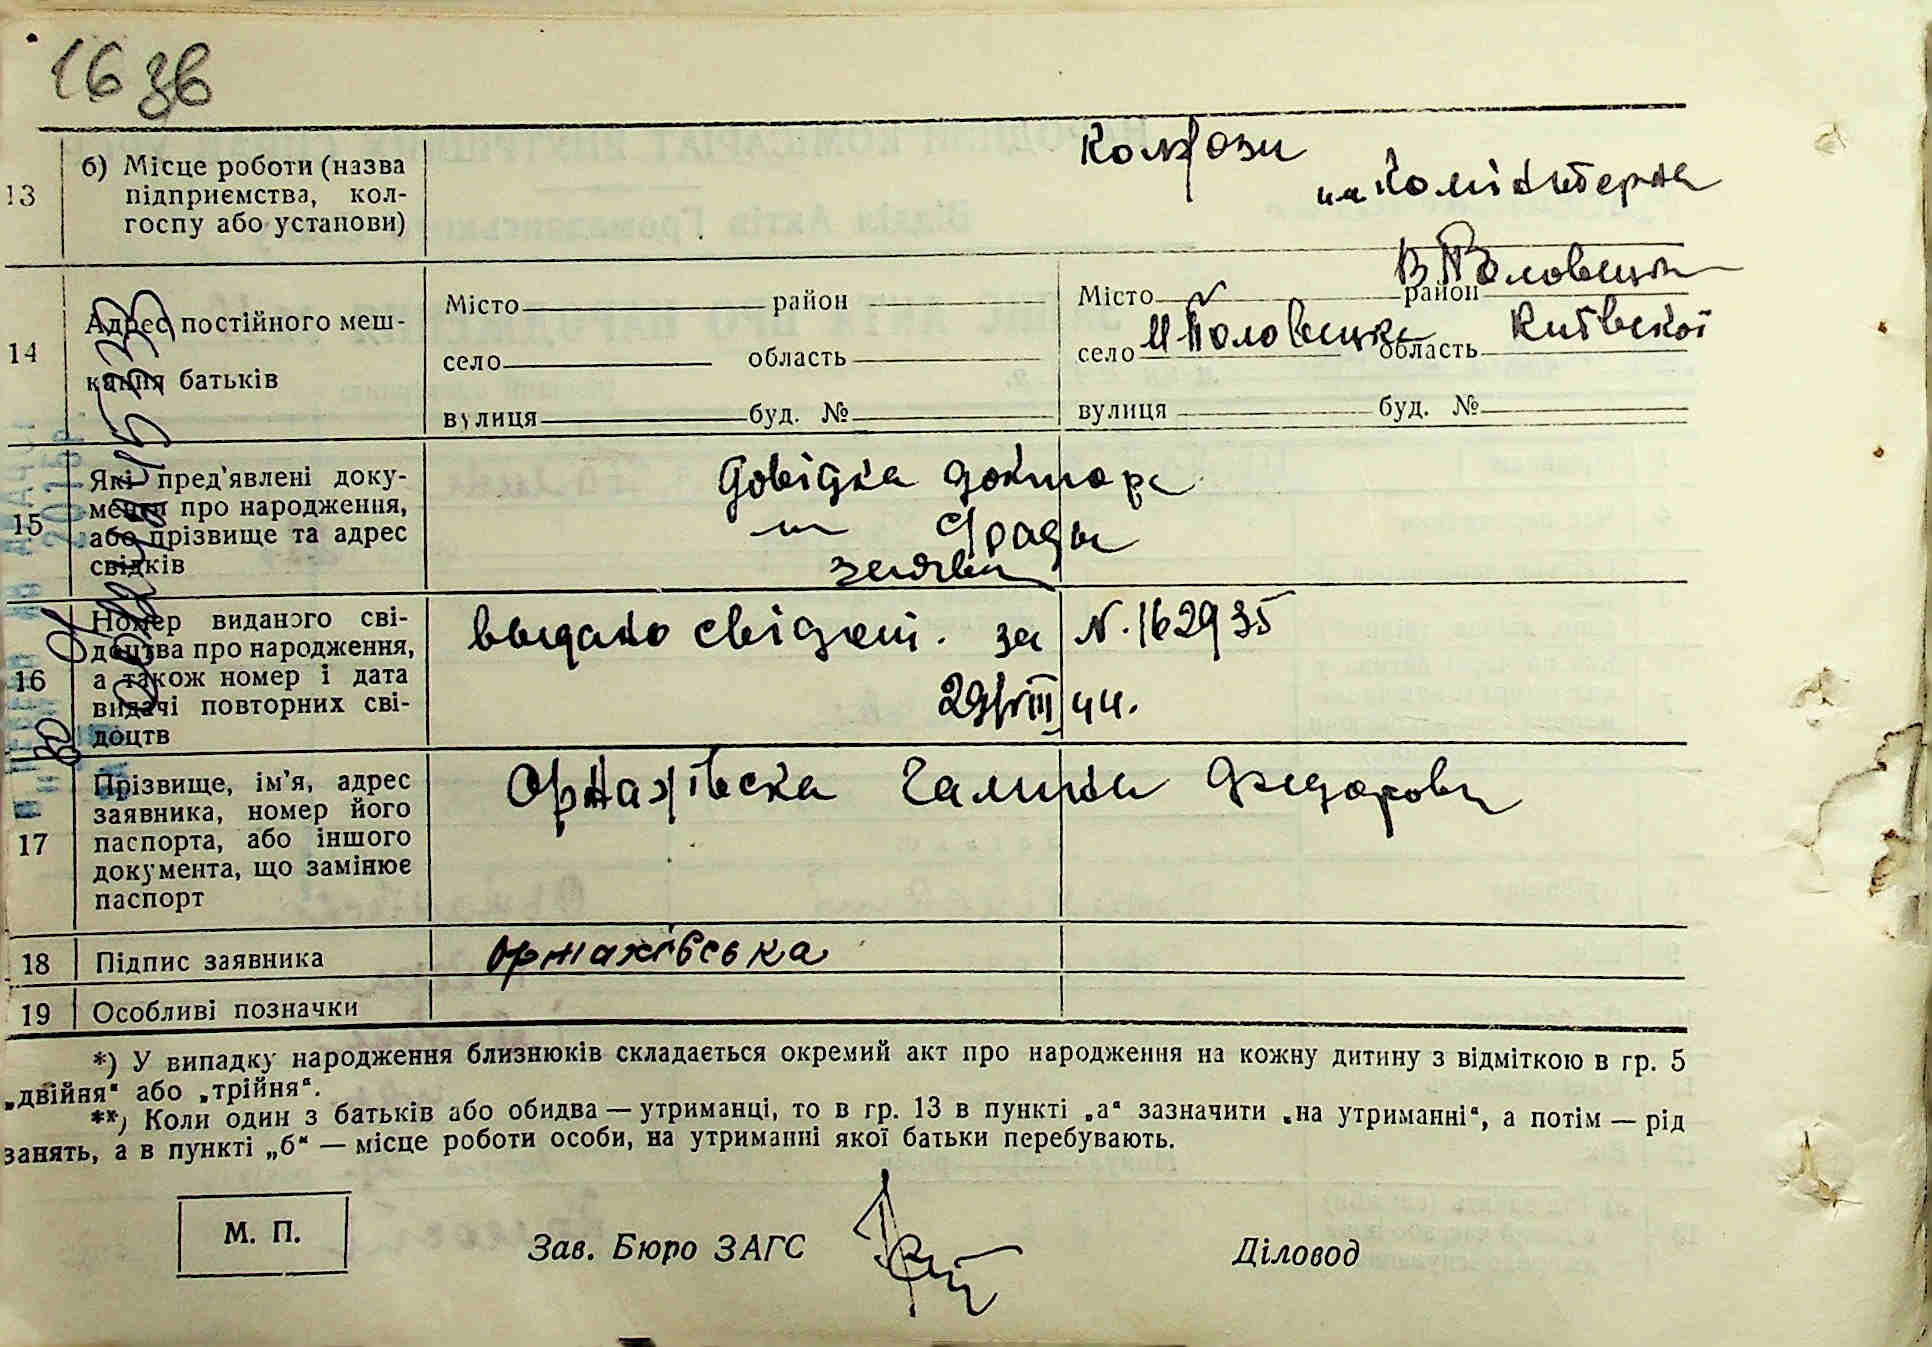 16 зв
13
б) Місце роботи (назва
підприємства, кол-
госпу або установи)
Колгозн
им Комінтерна
14
Адрес постійного меш-
кання батьків
Місто район
село область
вулиця буд. №
В Половецьк
Місто район
М Половецьке Київської
село область
вулиця буд. №
15
Які пред'явлені доку-
менти про народження,
або прізвище та адрес
свідків
Довідка доктора
зая
16
Номер виданого сві-
доцтва про народження,
а також номер і дата
видачі повторних сві-
доцтв
видано свідоц. за N.162935
29/VIII 44.
17
Прізвище, ім'я, адрес
заявника, номер його
паспорта, або іншого
документа, що замінює
паспорт
Оржахівска Галина Федоровн
18
Підпис заявника
Оржахівська
19
Особливі позначки
*) У випадку народження близнюків складається окремий акт про народження на кожну дитину з відміткою в гр. 5
„двійня“ або „трійня“.
**) Коли один з батьків або обидва — утриманці, то в гр. 13 в пункті „а“ зазначити „на утриманні“, а потім — рід
занять, а в пункті „б“ — місце роботи особи, на утриманні якої батьки перебувають.
М. П.
Зав. Бюро ЗАГС
Діловод